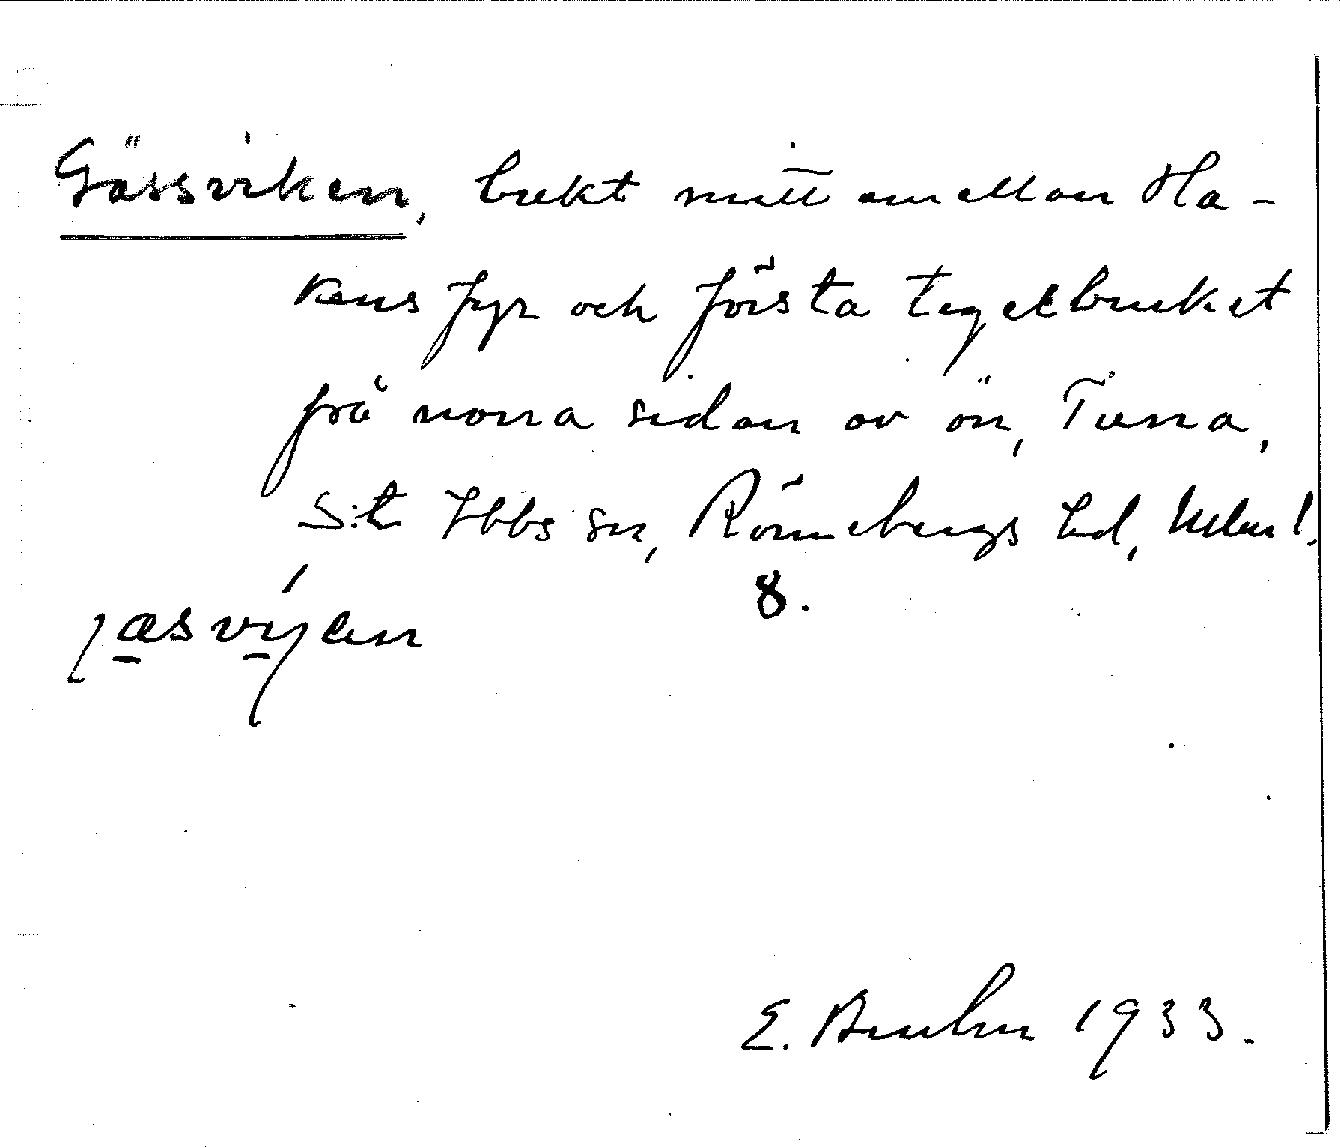 Gässviken, bukt mitt emellan Ha-
kens fyr och första tegelbruket
frå norra sidan av ön, Tuna,
S:t Ibbs sn, Rönnebergs hd, Mlm l.
8.
jæsvíjen
E. Bruhn 1933.